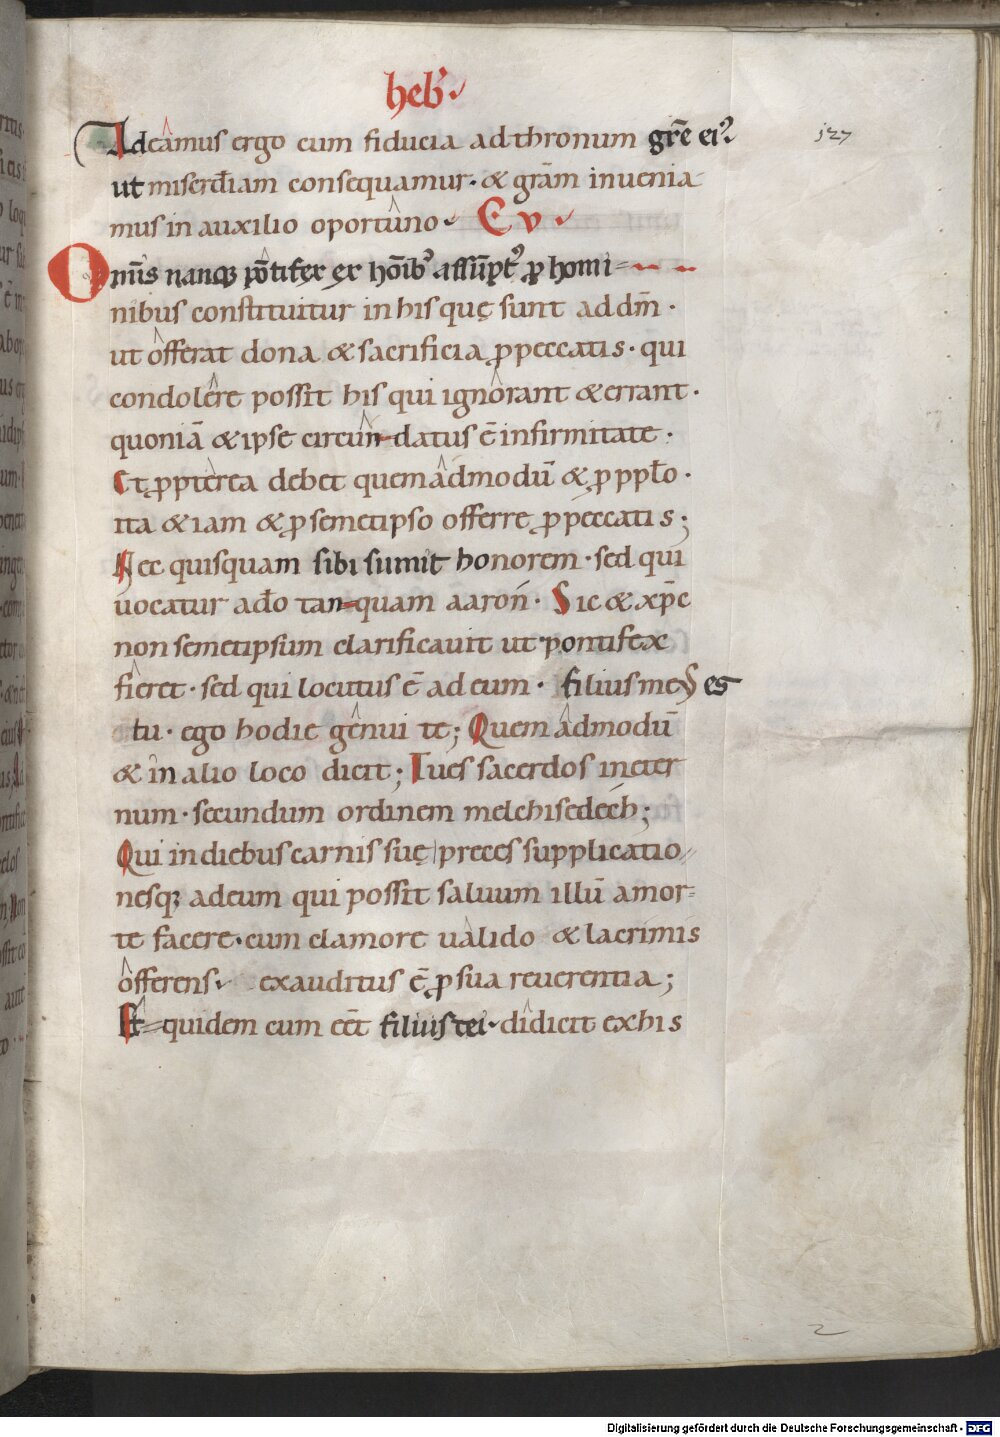 hebꝰ
127
Adeamus ergo cum fiducia ad thronum gr̄e eiꝰ
ut miscrd̄iam consequamur · & grām inuenia
mus in auxilio oportuno ✓ C V ✓
Omīs nanqꝫ pōtifex ex hōibꝰ assūptꝰ ꝓ homi
nibus constituitur in his quę sunt ad dm̄ ·
ut offerat dona & sacrificia ꝓ peccatis · qui
condolere possit his qui ignorant & errant ·
quoniā & ipse circun-datus ē infirmitate ·
Et ꝓpterea debet quemadmodū & ꝓ pplo ·
ita & iam & ꝓ semetipso offerre ꝓ peccatis ;
Nec quisquam sibi sumit honorem · sed qui
uocatur a do tan-quam aaron · Sic & xp̄c
non semetipsum clarificauit ut pontifex
fieret · sed qui locutus ē ad eum · filius meꝰ es
tu · ego hodie genui te ; Quem admodū
& in alio loco dicit ; Tu es sacerdos in eter
num · secundum ordinem melchisedech ;
Qui in diebus carnis suę preces supplicatio
nesqꝫ ad eum qui possit saluum illū a mor
te facere · cum clamore ualido & lacrimis
offerens ✓ exauditus ē ꝓ sua reuerentia ;
Et quidem cum eēt filius dei · didicit ex his
2
Digitalisierung gefördert durch die Deutsche Forschungsgemeinschaft - DFG